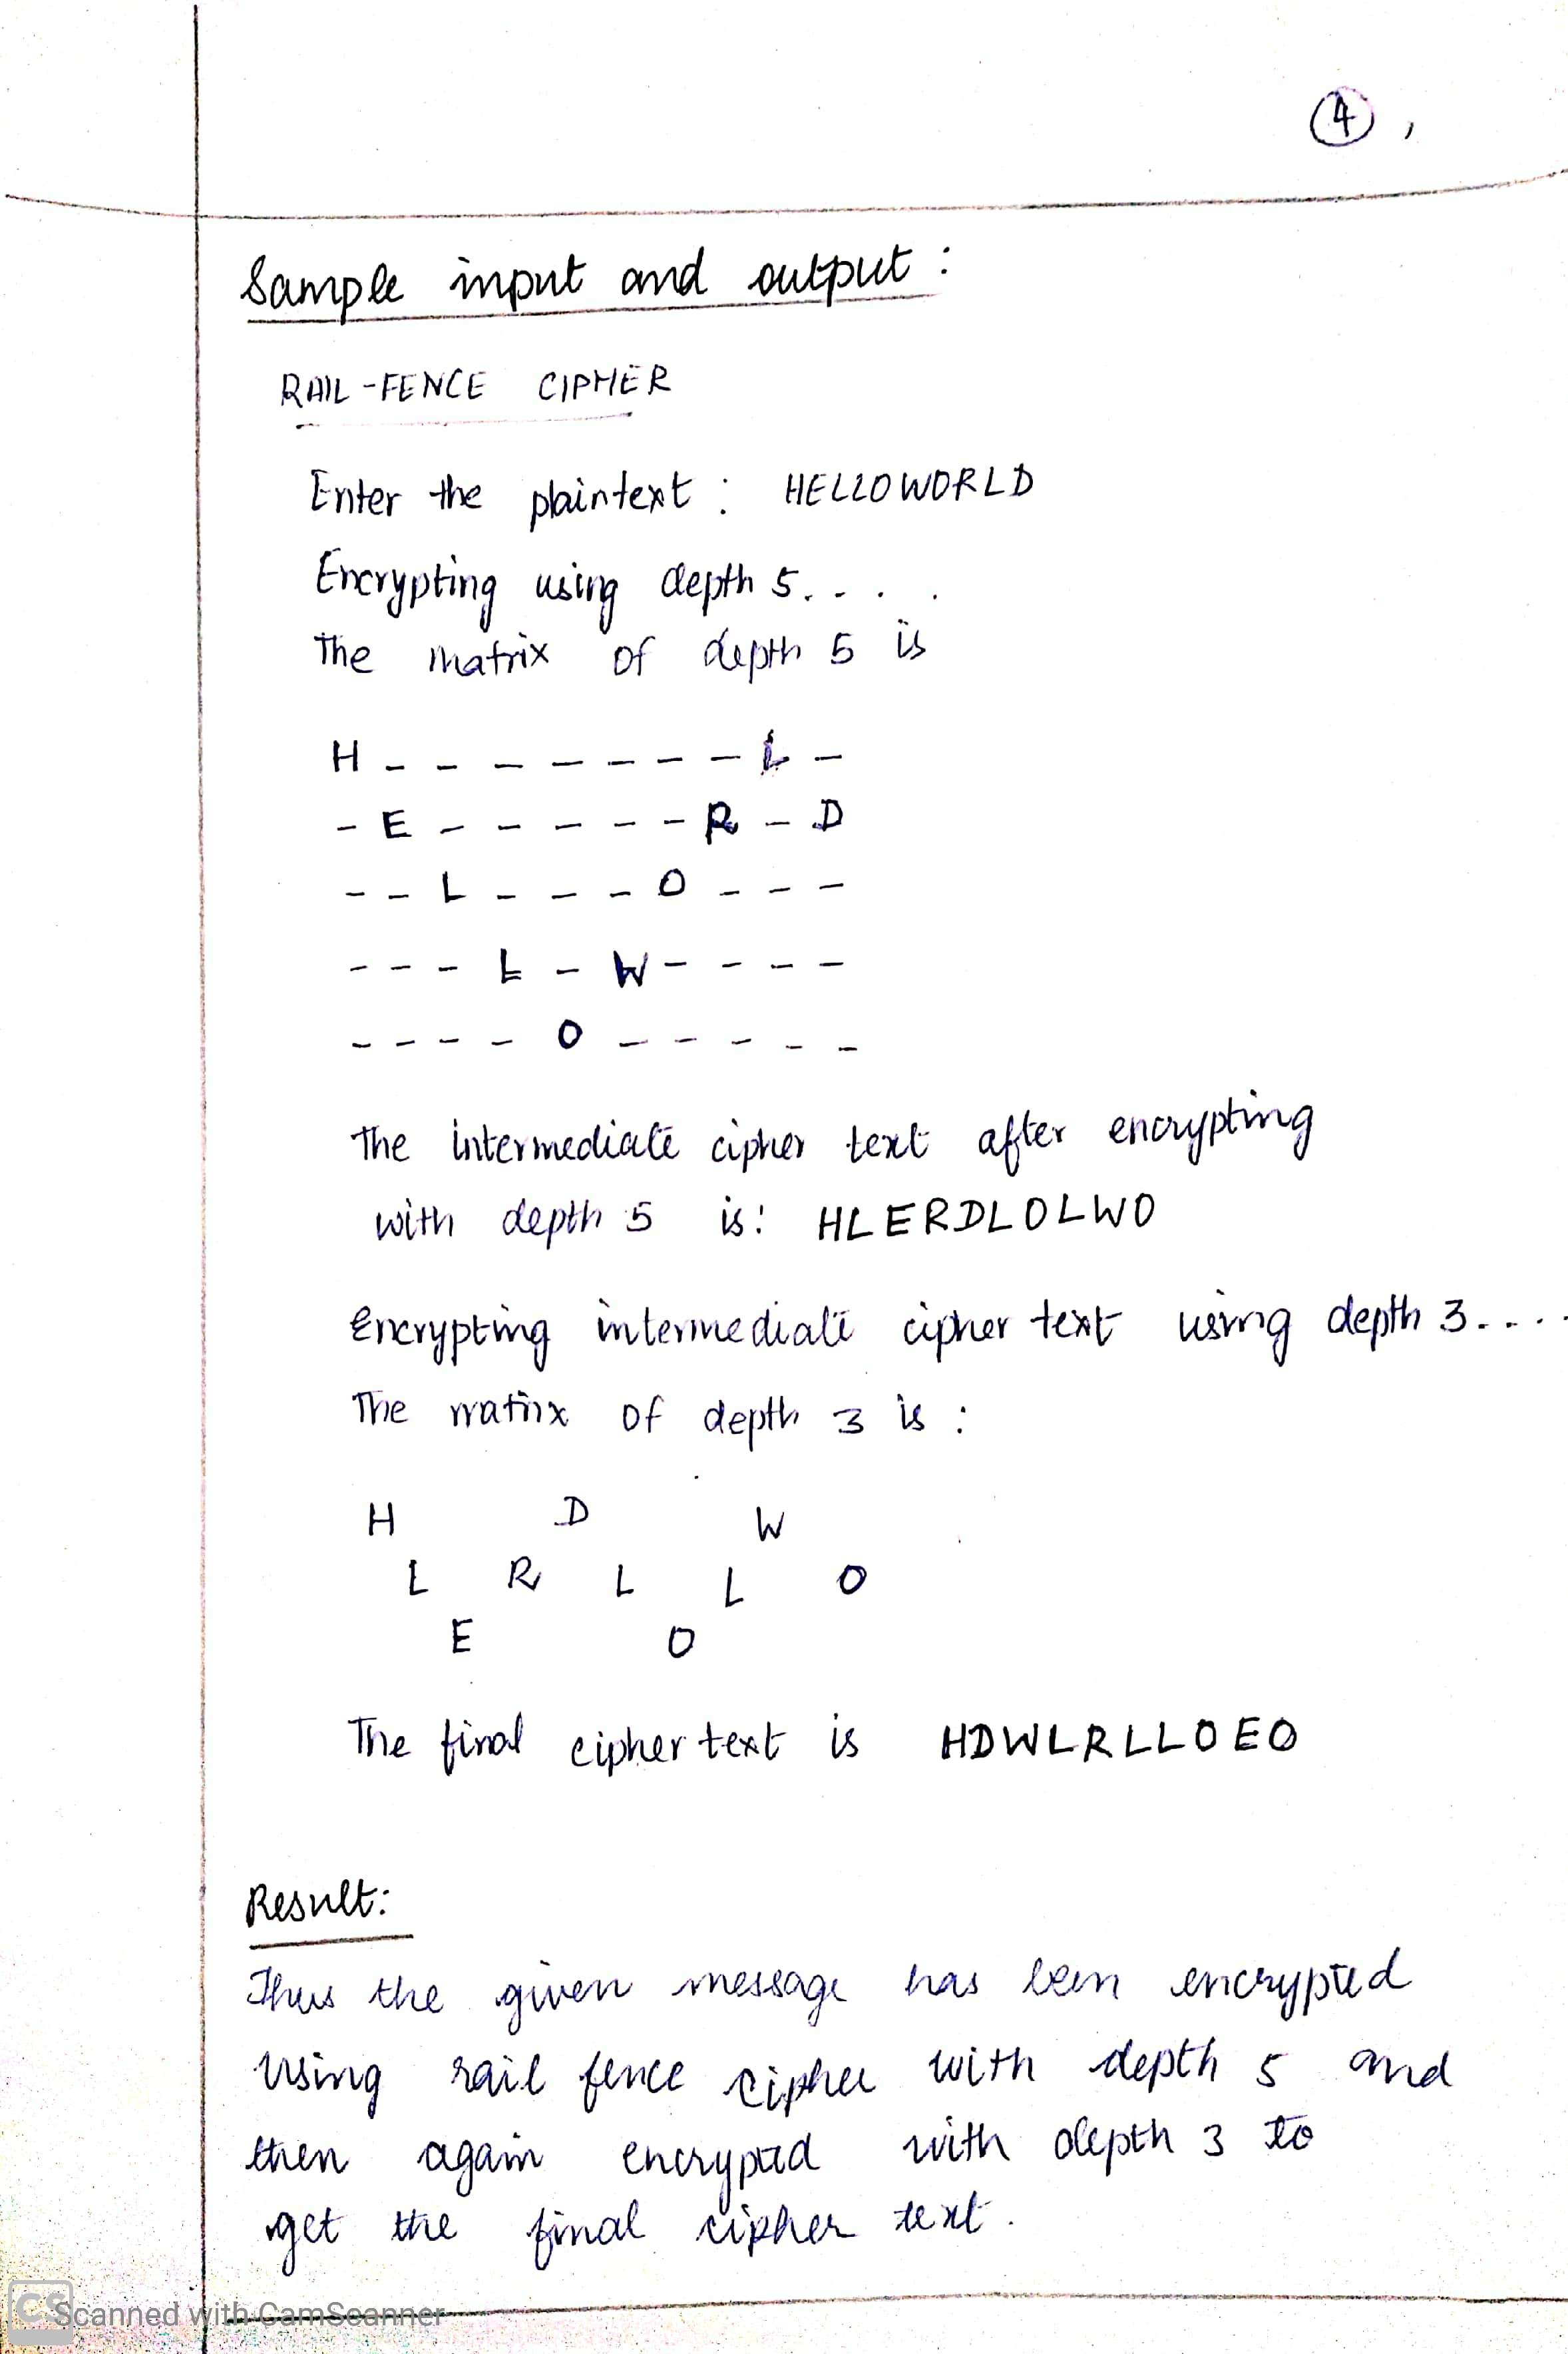 4,
Sample input and output :
RAIL-FENCE CIPHER
Enter the plaintext : HELLOWORLD
Encrypting using depth 5. . . .
The matrix of depth 5 is
H - - - - - - - L -
- E - - - - - R - D
- - L - - - O - - -
- - - L - W - - - -
- - - - O - - - - -
The intermediate cipher text after encrypting
with depth 5 is: HLERDLOLWO
Encrypting intermediate cipher text using depth 3....
The matrix of depth 3 is :
H D W
L R L L O
E O
The final cipher text is HDWLRLLOEO
Result:
Thus the given message has been encrypted
using rail fence cipher with depth 5 and
then again encrypted with depth 3 to
get the final cipher text.
CS Scanned with CamScanner